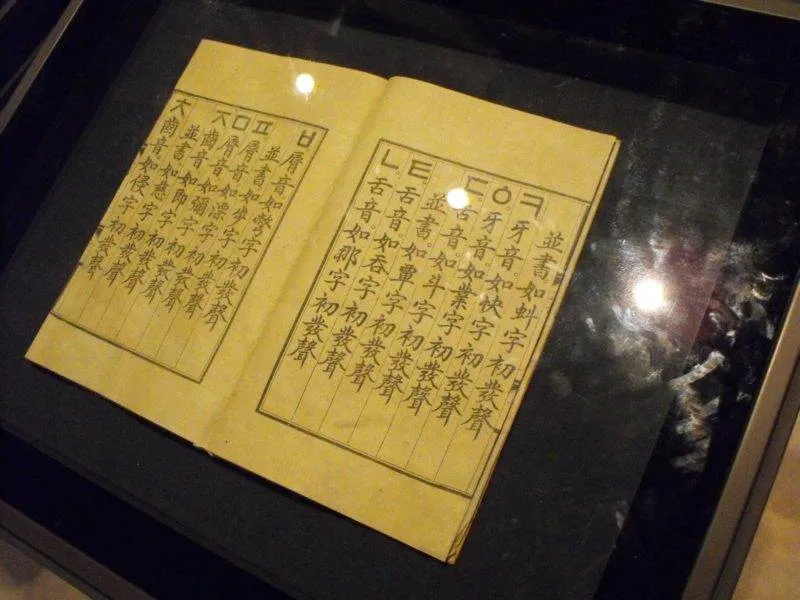 並書如虯字初發聲
ㅋ牙音如快字初發聲
ㆁ牙音如業字初發聲
ㄷ舌音。如斗字初發聲
並書。如覃字初發聲
ㅌ舌音。如吞字初發聲
ㄴ舌音。如那字初發聲
ㅂ脣音。如彆字初發聲
並書。如步字初發聲
ㅍ脣音。如漂字初發聲
ㅁ脣音。如彌字初發聲
ㅈ齒音。如即字初發聲
並書。如慈字初發聲
ㅊ齒音。如侵字初發聲